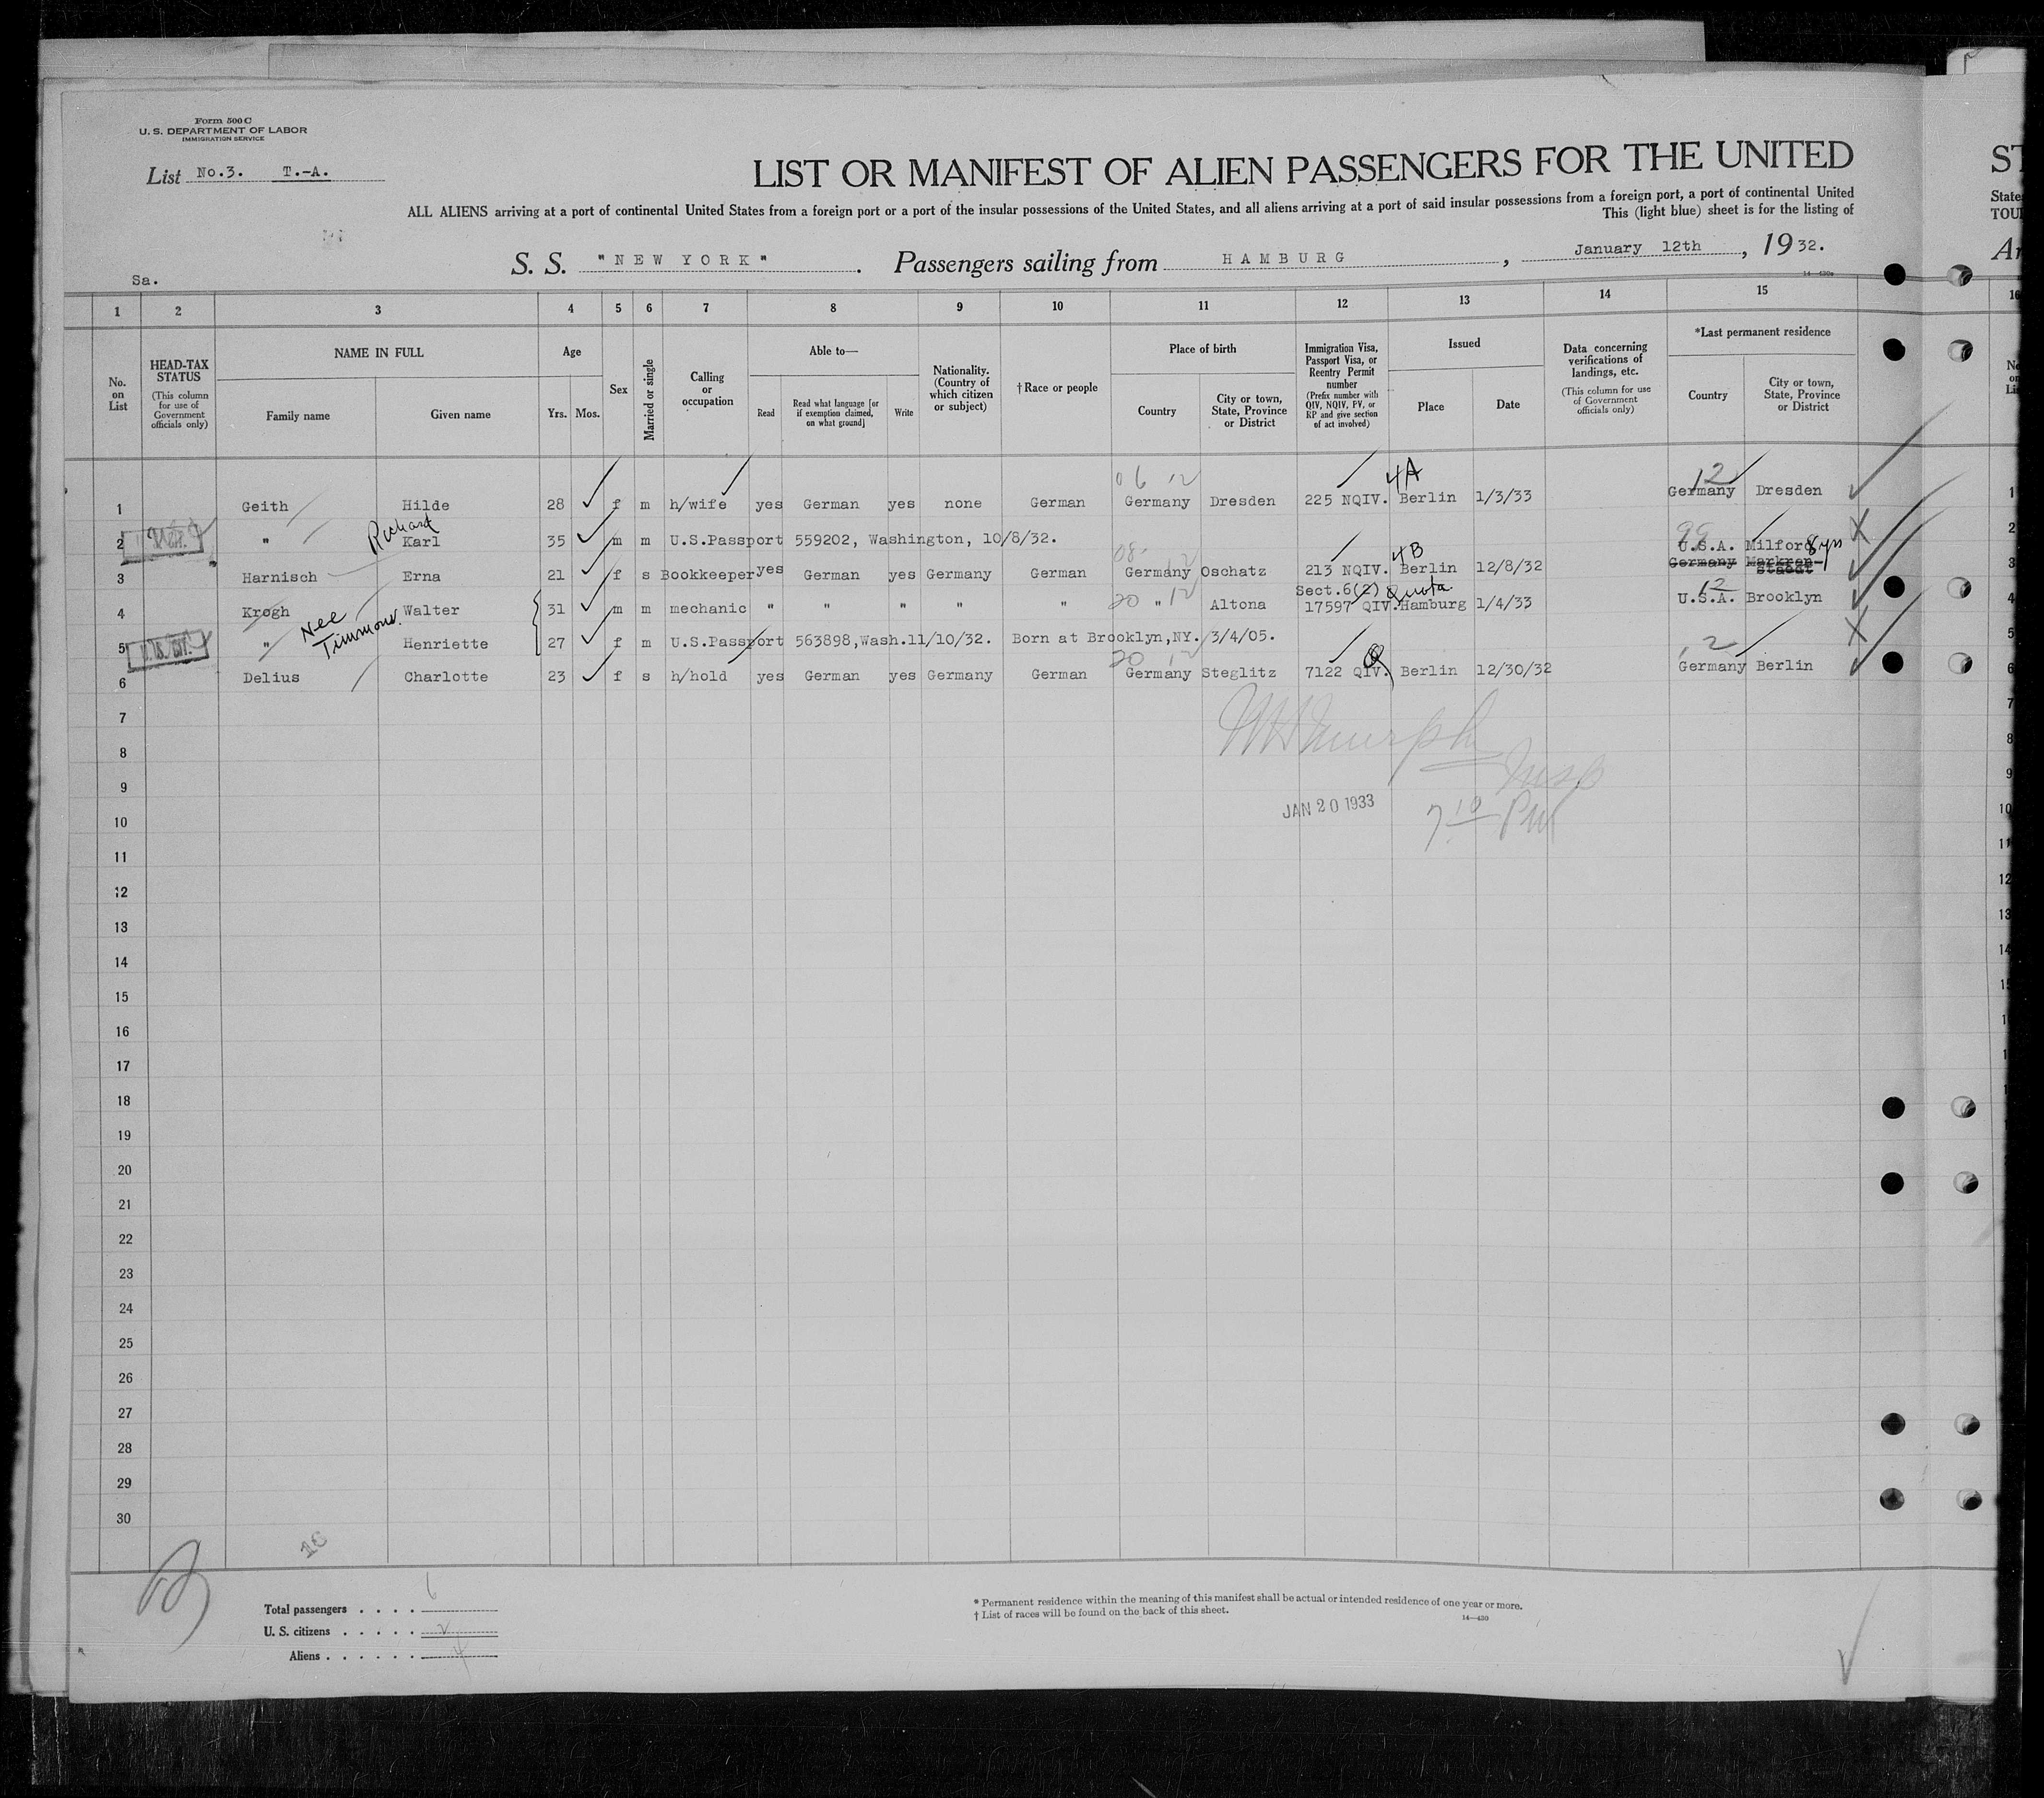 Form 500 C
U. S. DEPARTMENT OF LABOR
IMMIGRATION SERVICE
List No.3. T.-A.
LIST OR MANIFEST OF ALIEN PASSENGERS FOR THE UNITED
ST
ALL ALIENS arriving at a port of continental United States from a foreign port or a port of the insular possessions of the United States, and all aliens arriving at a port of said insular possessions from a foreign port, a port of continental United
State
This (light blue) sheet is for the listing of
TOU
S. S. "NEW YORK". Passengers sailing from HAMBURG, January 12th, 1932.
Sa.
14—430a
1 2 3 4 5 6 7 8 9 10 11 12 13 14 15 16
No. on List
HEAD-TAX STATUS
(This column for use of Government officials only)
NAME IN FULL
Family name
Given name
Age
Yrs. Mos.
Sex
Married or single
Calling or occupation
Able to—
Read
Read what language [or if exemption claimed, on what ground]
Write
Nationality. (Country of which citizen or subject)
† Race or people
Place of birth
Country
City or town, State, Province or District
Immigration Visa, Passport Visa, or Reentry Permit number
(Prefix number with QIV, NQIV, PV, or RP and give section of act involved)
Issued
Place
Date
Data concerning verifications of landings, etc.
(This column for use of Government officials only)
*Last permanent residence
Country
City or town, State, Province or District
06 12 4A 12
1 Geith Hilde 28 f m h/wife yes German yes none German Germany Dresden 225 NQIV. Berlin 1/3/33 Germany Dresden 1
Richard
2 " Karl 35 m m U.S.Passport 559202, Washington, 10/8/32. 99 U.S.A. Milford 8 yrs 2
08 12 4B
3 Harnisch Erna 21 f s Bookkeeper yes German yes Germany German Germany Oschatz 213 NQIV. Berlin 12/8/32 Germany Markran-staedt 3
Sect.6(2) Quota 12
4 Krogh Walter 31 m m mechanic " " " " " 20 " 12 Altona 17597 QIV. Hamburg 1/4/33 U.S.A. Brooklyn 4
Nee Timmons.
5 " Henriette 27 f m U.S.Passport 563898,Wash.11/10/32. Born at Brooklyn,NY. 3/4/05. 5
U.S. CIT.
20 12 Q
6 Delius Charlotte 23 f s h/hold yes German yes Germany German Germany Steglitz 7122 QIV. Berlin 12/30/32 Germany Berlin 6
7
8
9
10
11
12
13
14
15
16
17
18
19
20
21
22
23
24
25
26
27
28
29
30
Murphy
Insp
JAN 20 1933
7 10 PM
Total passengers . . . . 6
U. S. citizens . . . . . 2
Aliens . . . . . . 4
* Permanent residence within the meaning of this manifest shall be actual or intended residence of one year or more.
† List of races will be found on the back of this sheet.
14—430